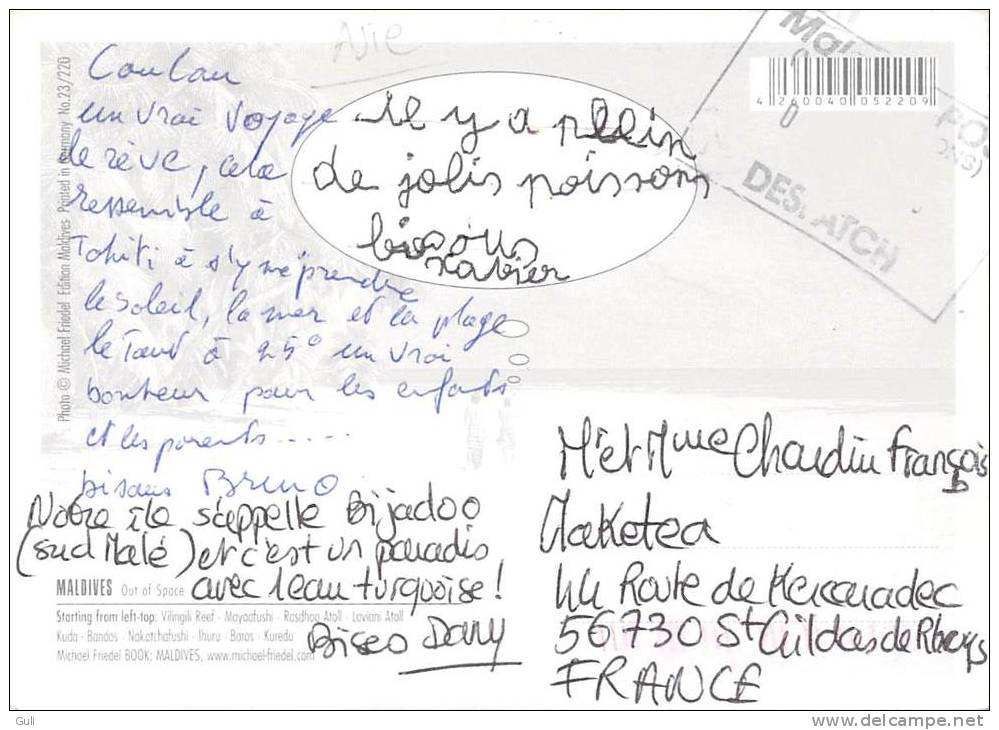 Nie
Coucou
un vrai voyage
de rêve, cela
ressemble à
Tahiti à s'y méprendre
le soleil, la mer et la plage
le Tout à 25° un vrai
bonheur pour les enfants
et les parents.....
bisous Bruno
il y a plein
de jolis poissons
bisous
xavier
Notre île s'appelle Bijadoo
(sud Malé) et c'est un paradis
avec l'eau turquoise!
Biseo Dany
Mr et Mme Chaudin François
Maketea
44 Route de Kercaradec
56730 St Gildas de Rhuys
FRANCE
4 260040 052209
DESPATCH
Photo © Michael Friedel Edition Maldives Printed in Germany No.23/220
MALDIVES Out of Space
Starting from left-top: Vilingili Reef - Mayaafushi - Rasdhoo Atoll - Laviani Atoll
Kuda - Bandos - Nakatchafushi - Ihuru - Baros - Kuredu
Michael Friedel BOOK: MALDIVES, www.michael-friedel.com
Guli
delcampe.net